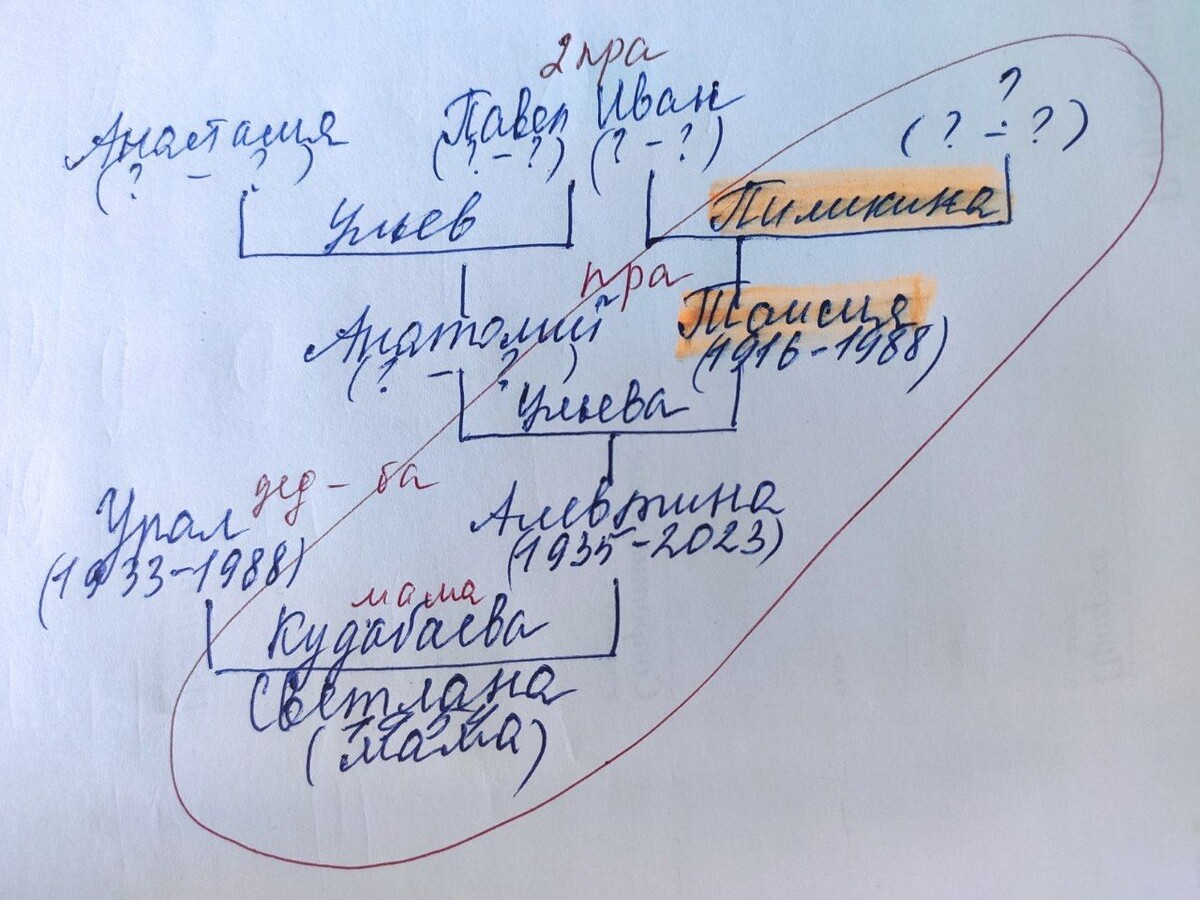 2 пра
Анастасия Павел Иван ?
(? – ?) (? – ?) (? – ?) (? – ?)
Ульев Пимикина
пра
Анатолий Таисия
(? – ?) (1916–1988)
Ульева
дед – ба
Урал Алевтина
(1933–1988) (1935–2023)
мама
Кудабаева
Светлана
(мама)